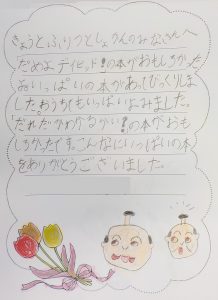 きょうとふりつとしょかんのみなさんへ
「だめよ、デイビッド!」の本がおもしろかった。
おいっぱいの本があってびっくりしま
した。おうちでもいっぱいよみました。
「だれだかわかるかい?」の本がおも
しろかったです。こんなにいっぱいの本
をありがとうございました。